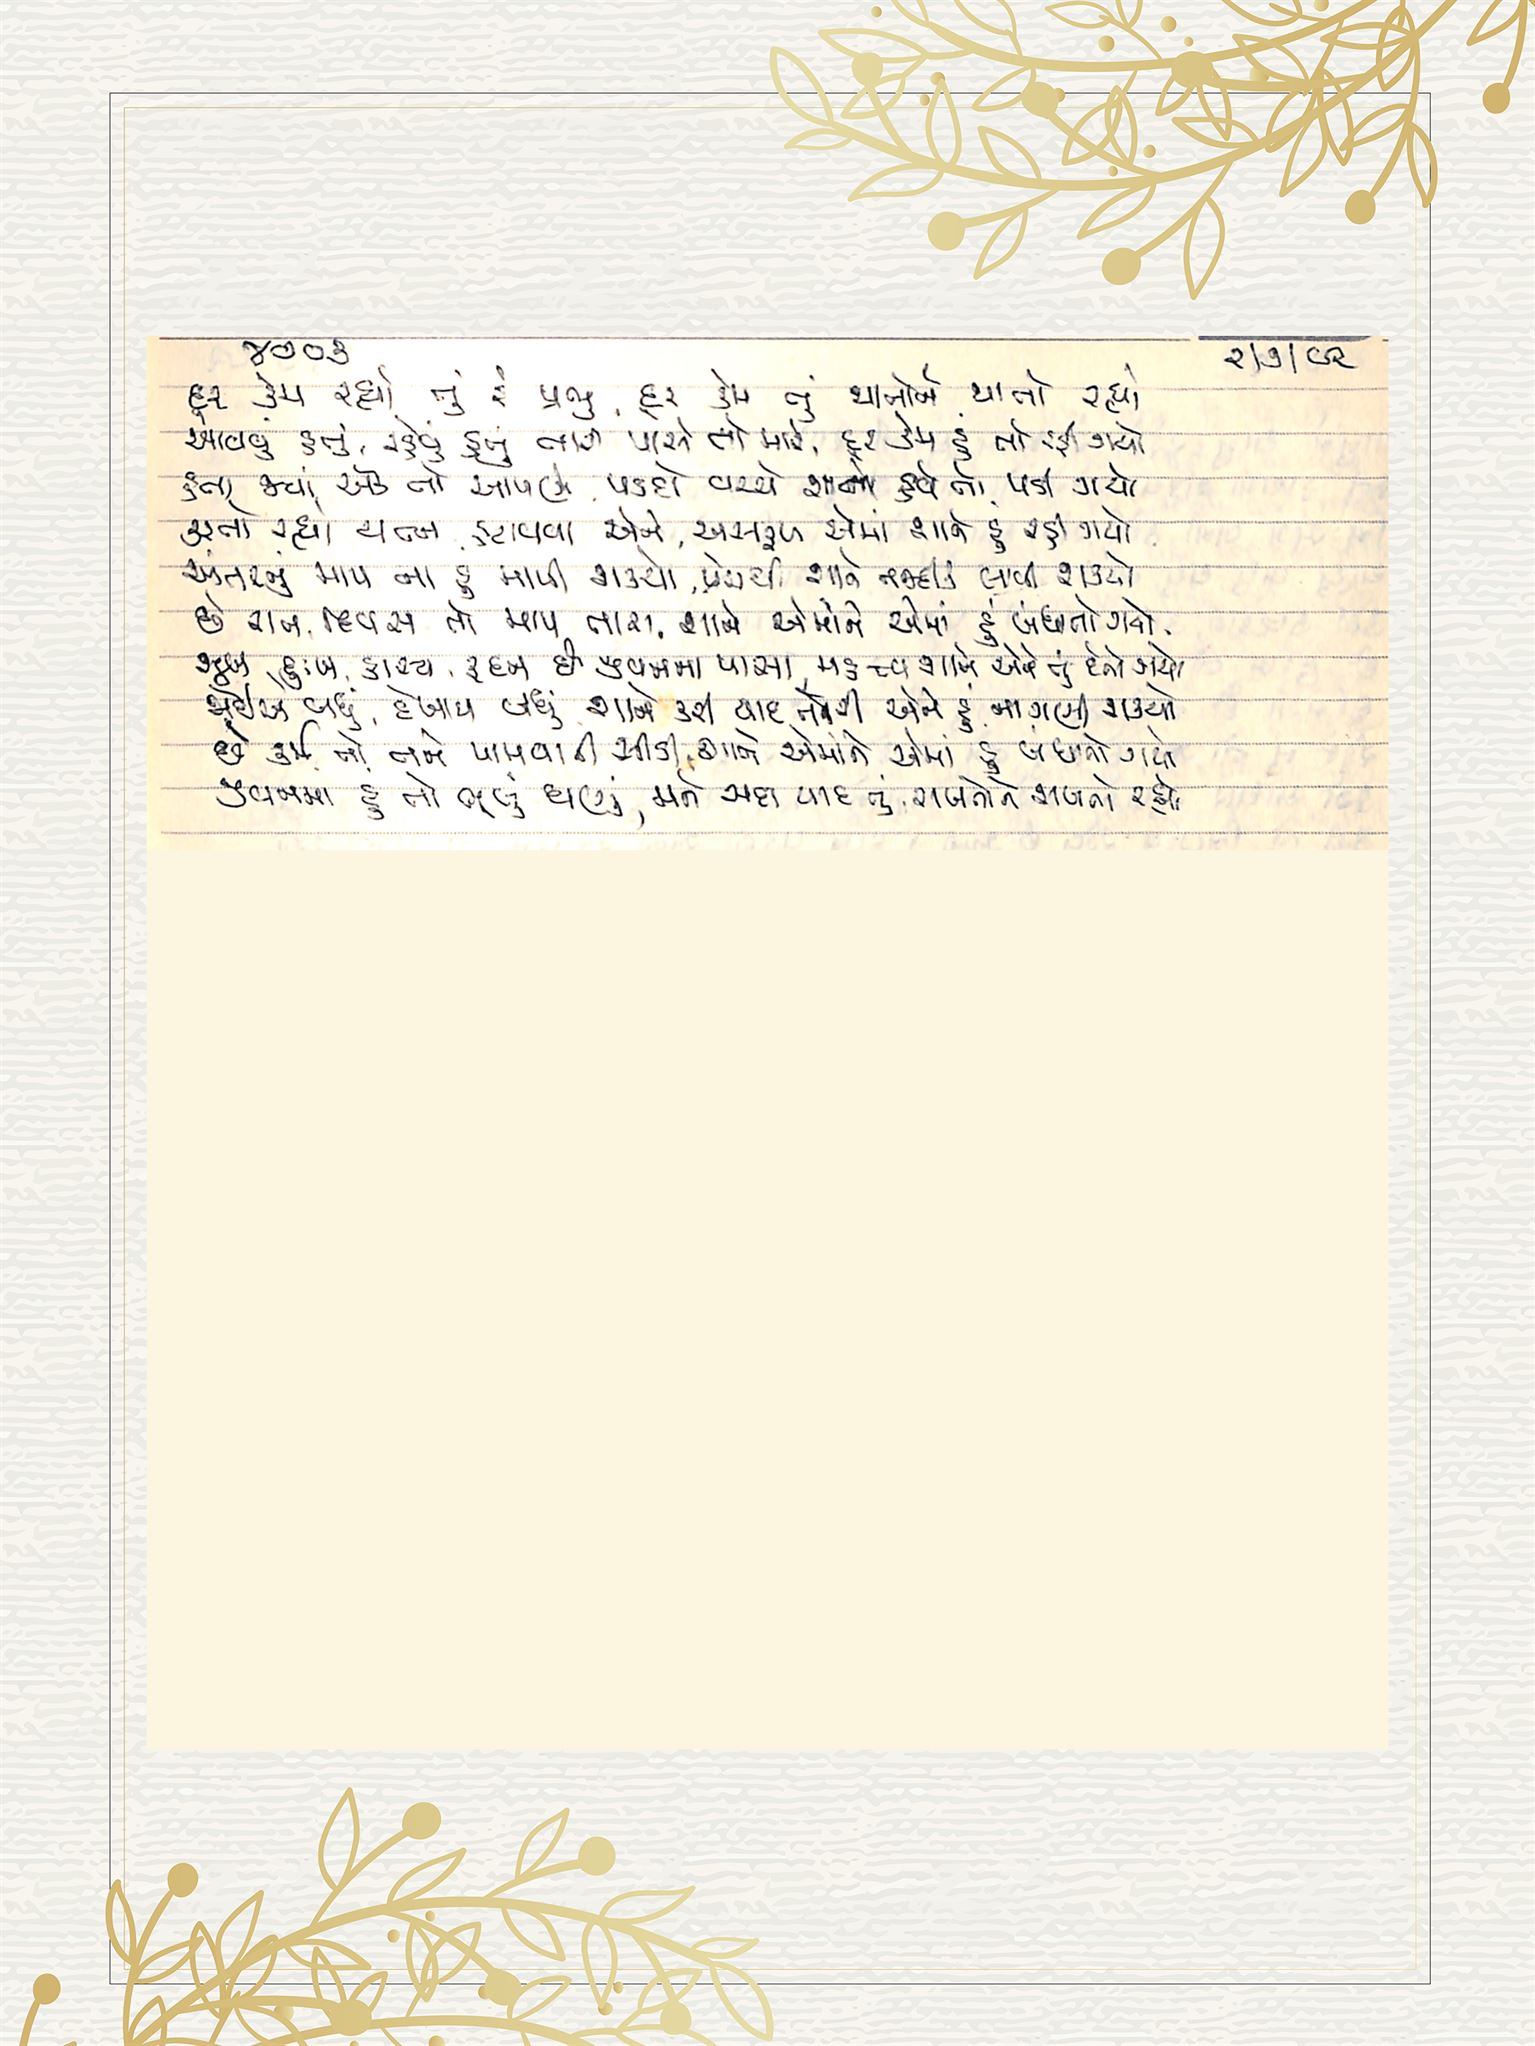 ૪૭૦૩ ૨/૭/૯૨
દૂર કેમ રહ્યો તું રે પ્રભુ, દૂર કેમ તું થાતોને થાતો રહ્યો
આવવું હતું, રહેવું હતું તારી પાસે તો મારે, દૂર કેમ હું તો રહી ગયો
હતા જ્યાં એક તો આપણે, પડદો વચ્ચે શાને હવે તો પડી ગયો
કરતો રહ્યો યત્ન હટાવવા એને, અસફળ એમાં શાને હું રહી ગયો
અંતરનું માપ ના હું માપી શક્યો, પ્રેમથી શાને નજદીક લાવી શક્યો
છે રાત દિવસ તો માપ તારા, શાને એમાંને એમાં હું બંધાતો ગયો.
સુખ, દુઃખ, હાસ્ય, રુદન છે જીવનના પાસા, મહત્ત્વ શાને એને તું દેતો ગયો
ભૂલીએ બધું, દેખાય બધું શાને કરી યાદ એને હું ના ગણી શક્યો
છે કર્મ તો તને પામવાની સીડી, શાને એમાંને એમાં હું બંધાતો ગયો
જીવનમાં હું તો ભૂલું ઘણું, મને સદા યાદ તું રાખતોને રાખતો રહ્યો